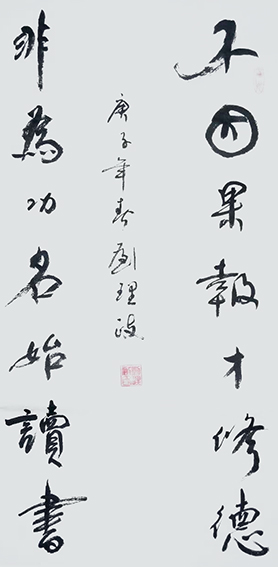 不因果報才修德
非為功名始讀書
庚子年春劉理政